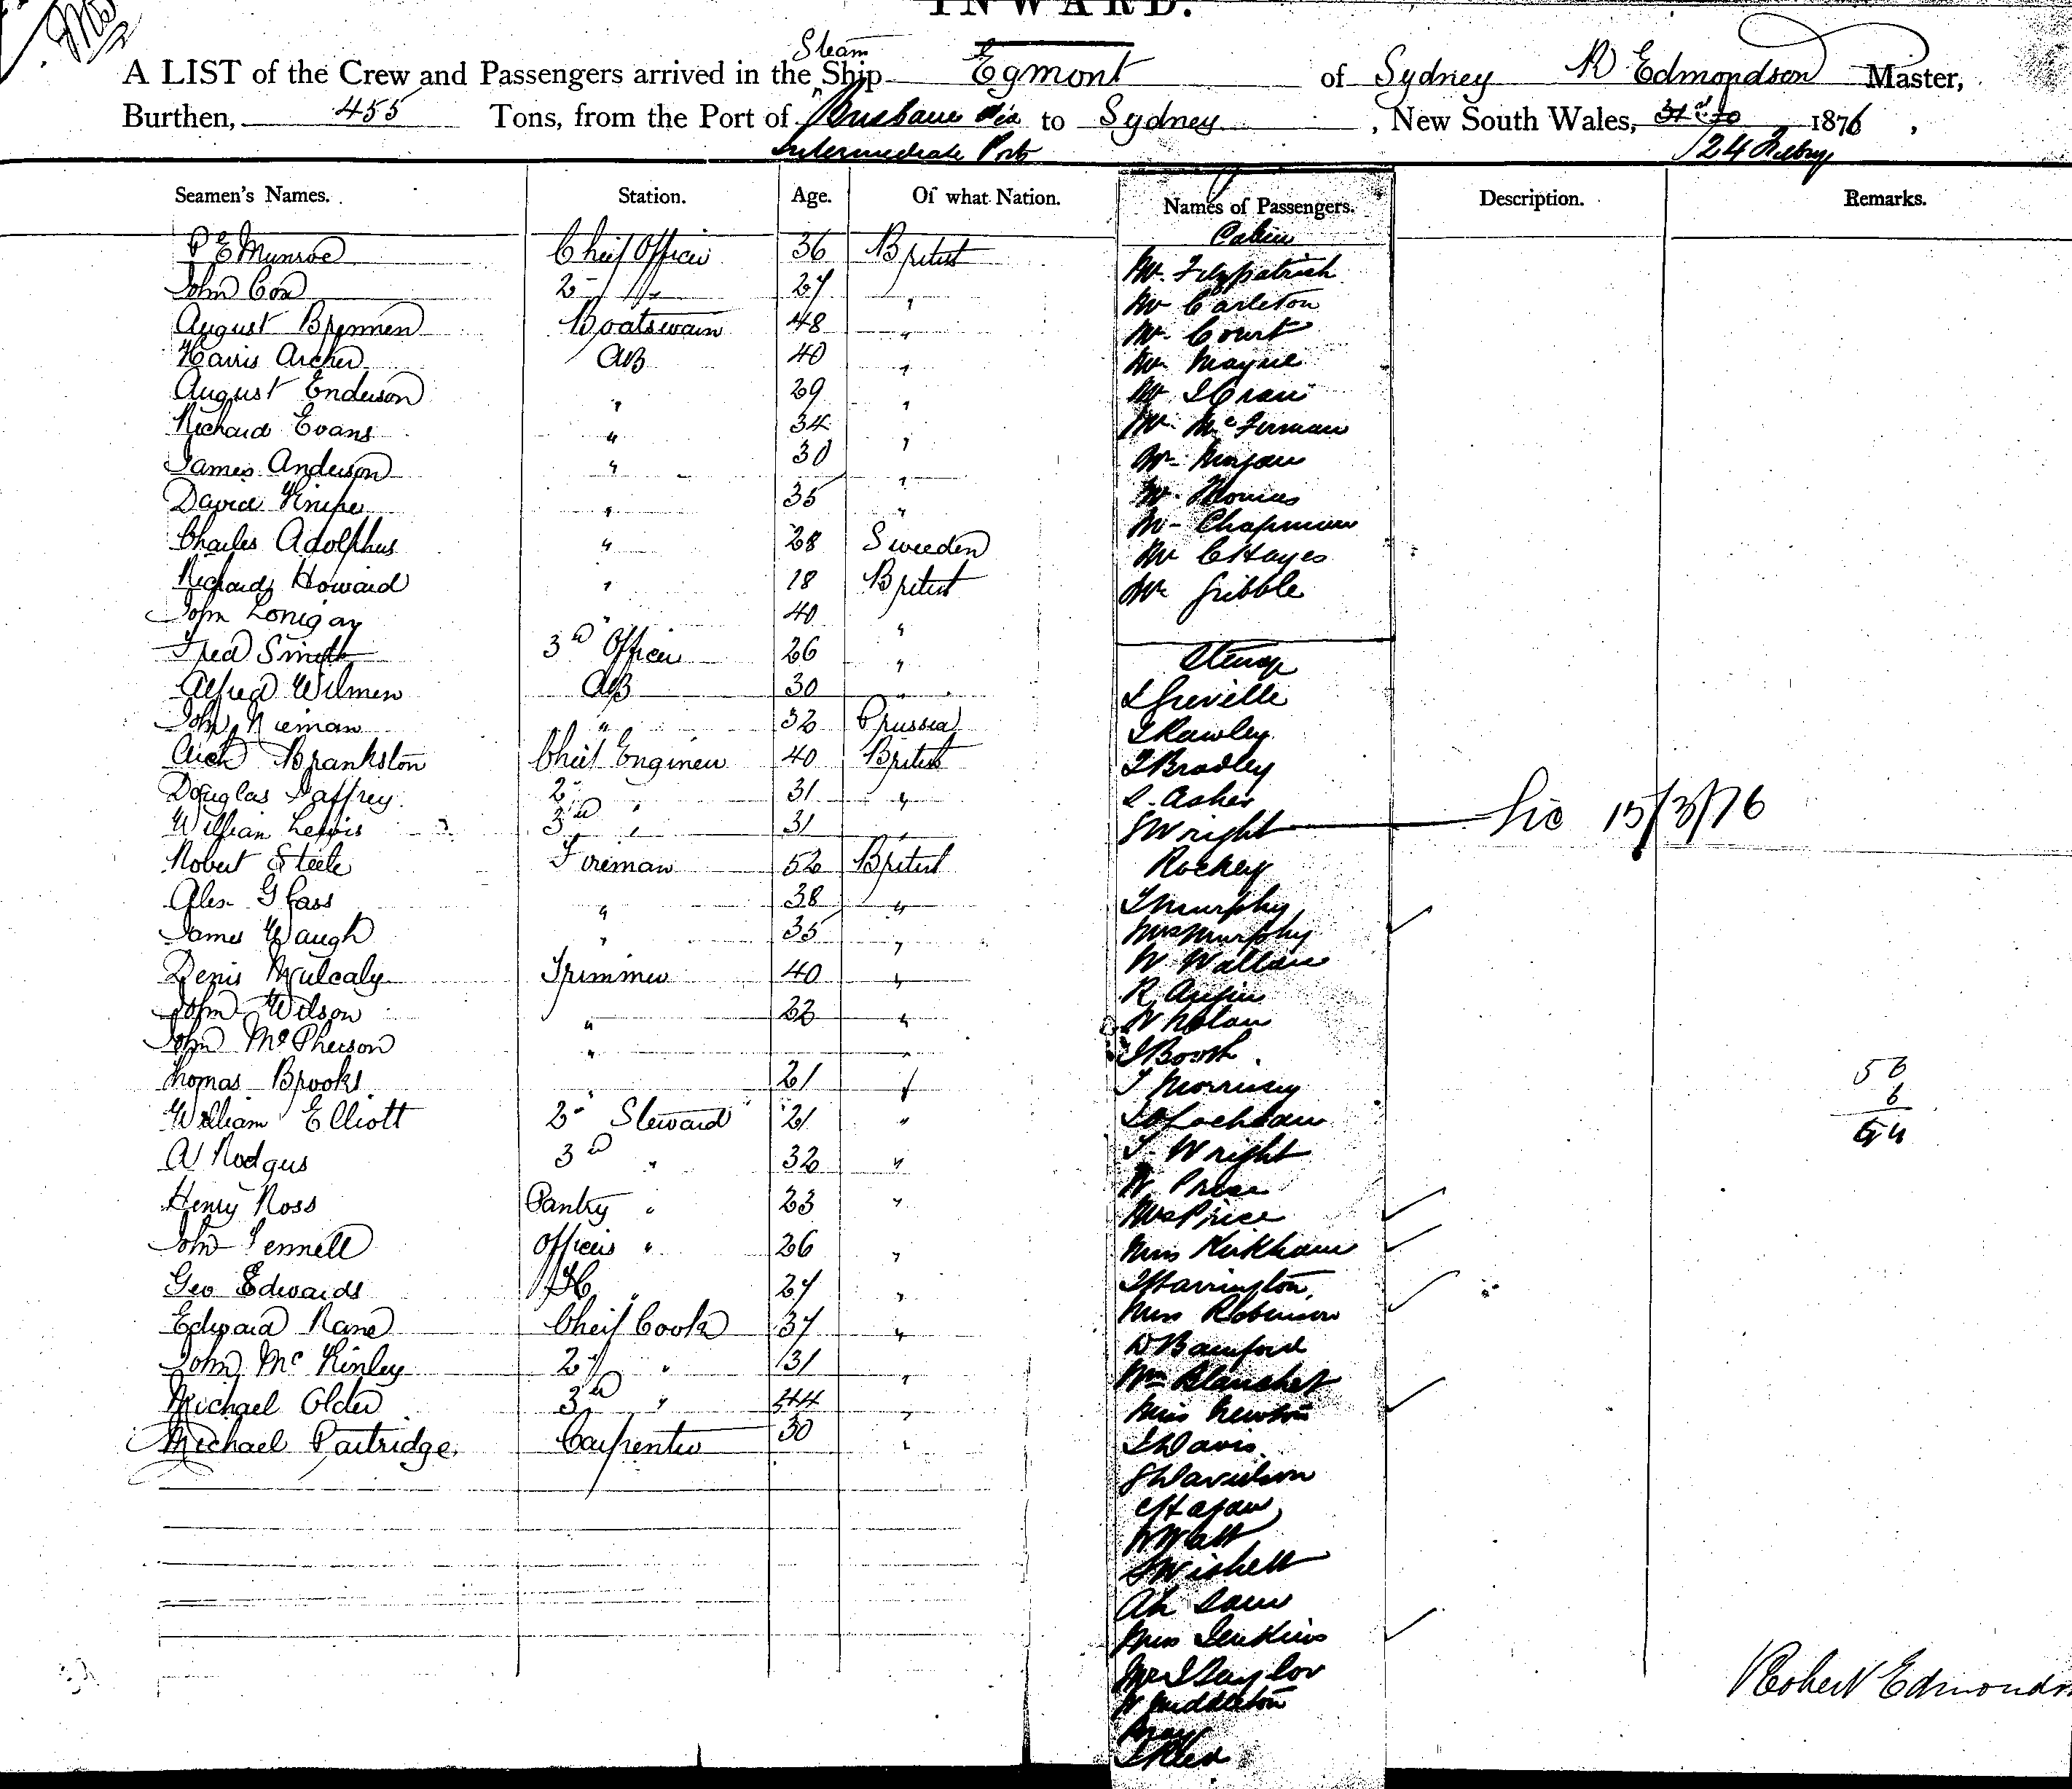 INWARD.
Steam
A LIST of the Crew and Passengers arrived in the Ship Egmont of Sydney R Edmondson Master,
Burthen, 455 Tons, from the Port of Brisbane via to Sydney, New South Wales, 1876,
Intermediate Ports 24 Febry
Seamen's Names. Station. Age. Of what Nation. Names of Passengers. Description. Remarks.
Cabin
P E Munroe Chief Officer 36 British
Mr. Fitzpatrick
John Cox 2nd " 27 "
Mr Carleton
August Brennen Boatswain 48 "
Mr. Court
Harris Archer AB 40 "
Mr. Mayne
August Enderson " 29 "
Mr
Richard Evans " 34 "
Mr.
James Anderson " 30 "
Mr
David Knipe " 35 "
Mr. Thomas
Mr Chapman
Charles Adolphus " 28 Sweeden
Mr C Hayes
Richard Howard " 18 British
Mr Gribble
John Lonigan " 40 "
Fred Smith 3rd Officer 26 "
Steerage
Alfred Wilmen AB 30 "
Greville
John Nieman " 32 Prussia
Rawley
Arch Brankston Cheif Engineer 40 British
Bradley
Douglas Jaffrey 2nd " 31 "
Asher
William Lewis 3rd " 31 "
Wright 15/3/76
Robert Steele Fireman 52 British
Rockey
Alex Glass " 38 "
T Murphy
James Waugh " 35 "
Mrs Murphy
Denis Mulcaly Trimmer 40 "
W Wallace
R
John Wilson " 22 "
W Nolan
John McPherson " "
Booth
Thomas Brooks " 21 "
T Morrissey
58
6
64
William Elliott 2nd Steward 21 "
A Rodgers 3rd " 32 "
T. Wright
W. Price
Henry Ross Pantry " 23 "
Mrs Price
John Fennell Officers " 26 "
Miss Kirkham
Geo Edwards " 27 "
Harrington
Edward Kane Cheif Cook 37 "
Miss Robinson
D Bamford
John McKinley 2nd " 31 "
Wm Blanchet
Michael Older 3rd " 44 "
Miss Newton
Michael Partridge. Carpenter 30 "
Davis
Davidson
W Watt
Ah
Miss Jenkins
Taylor
W Middleton
Robert Edmonds